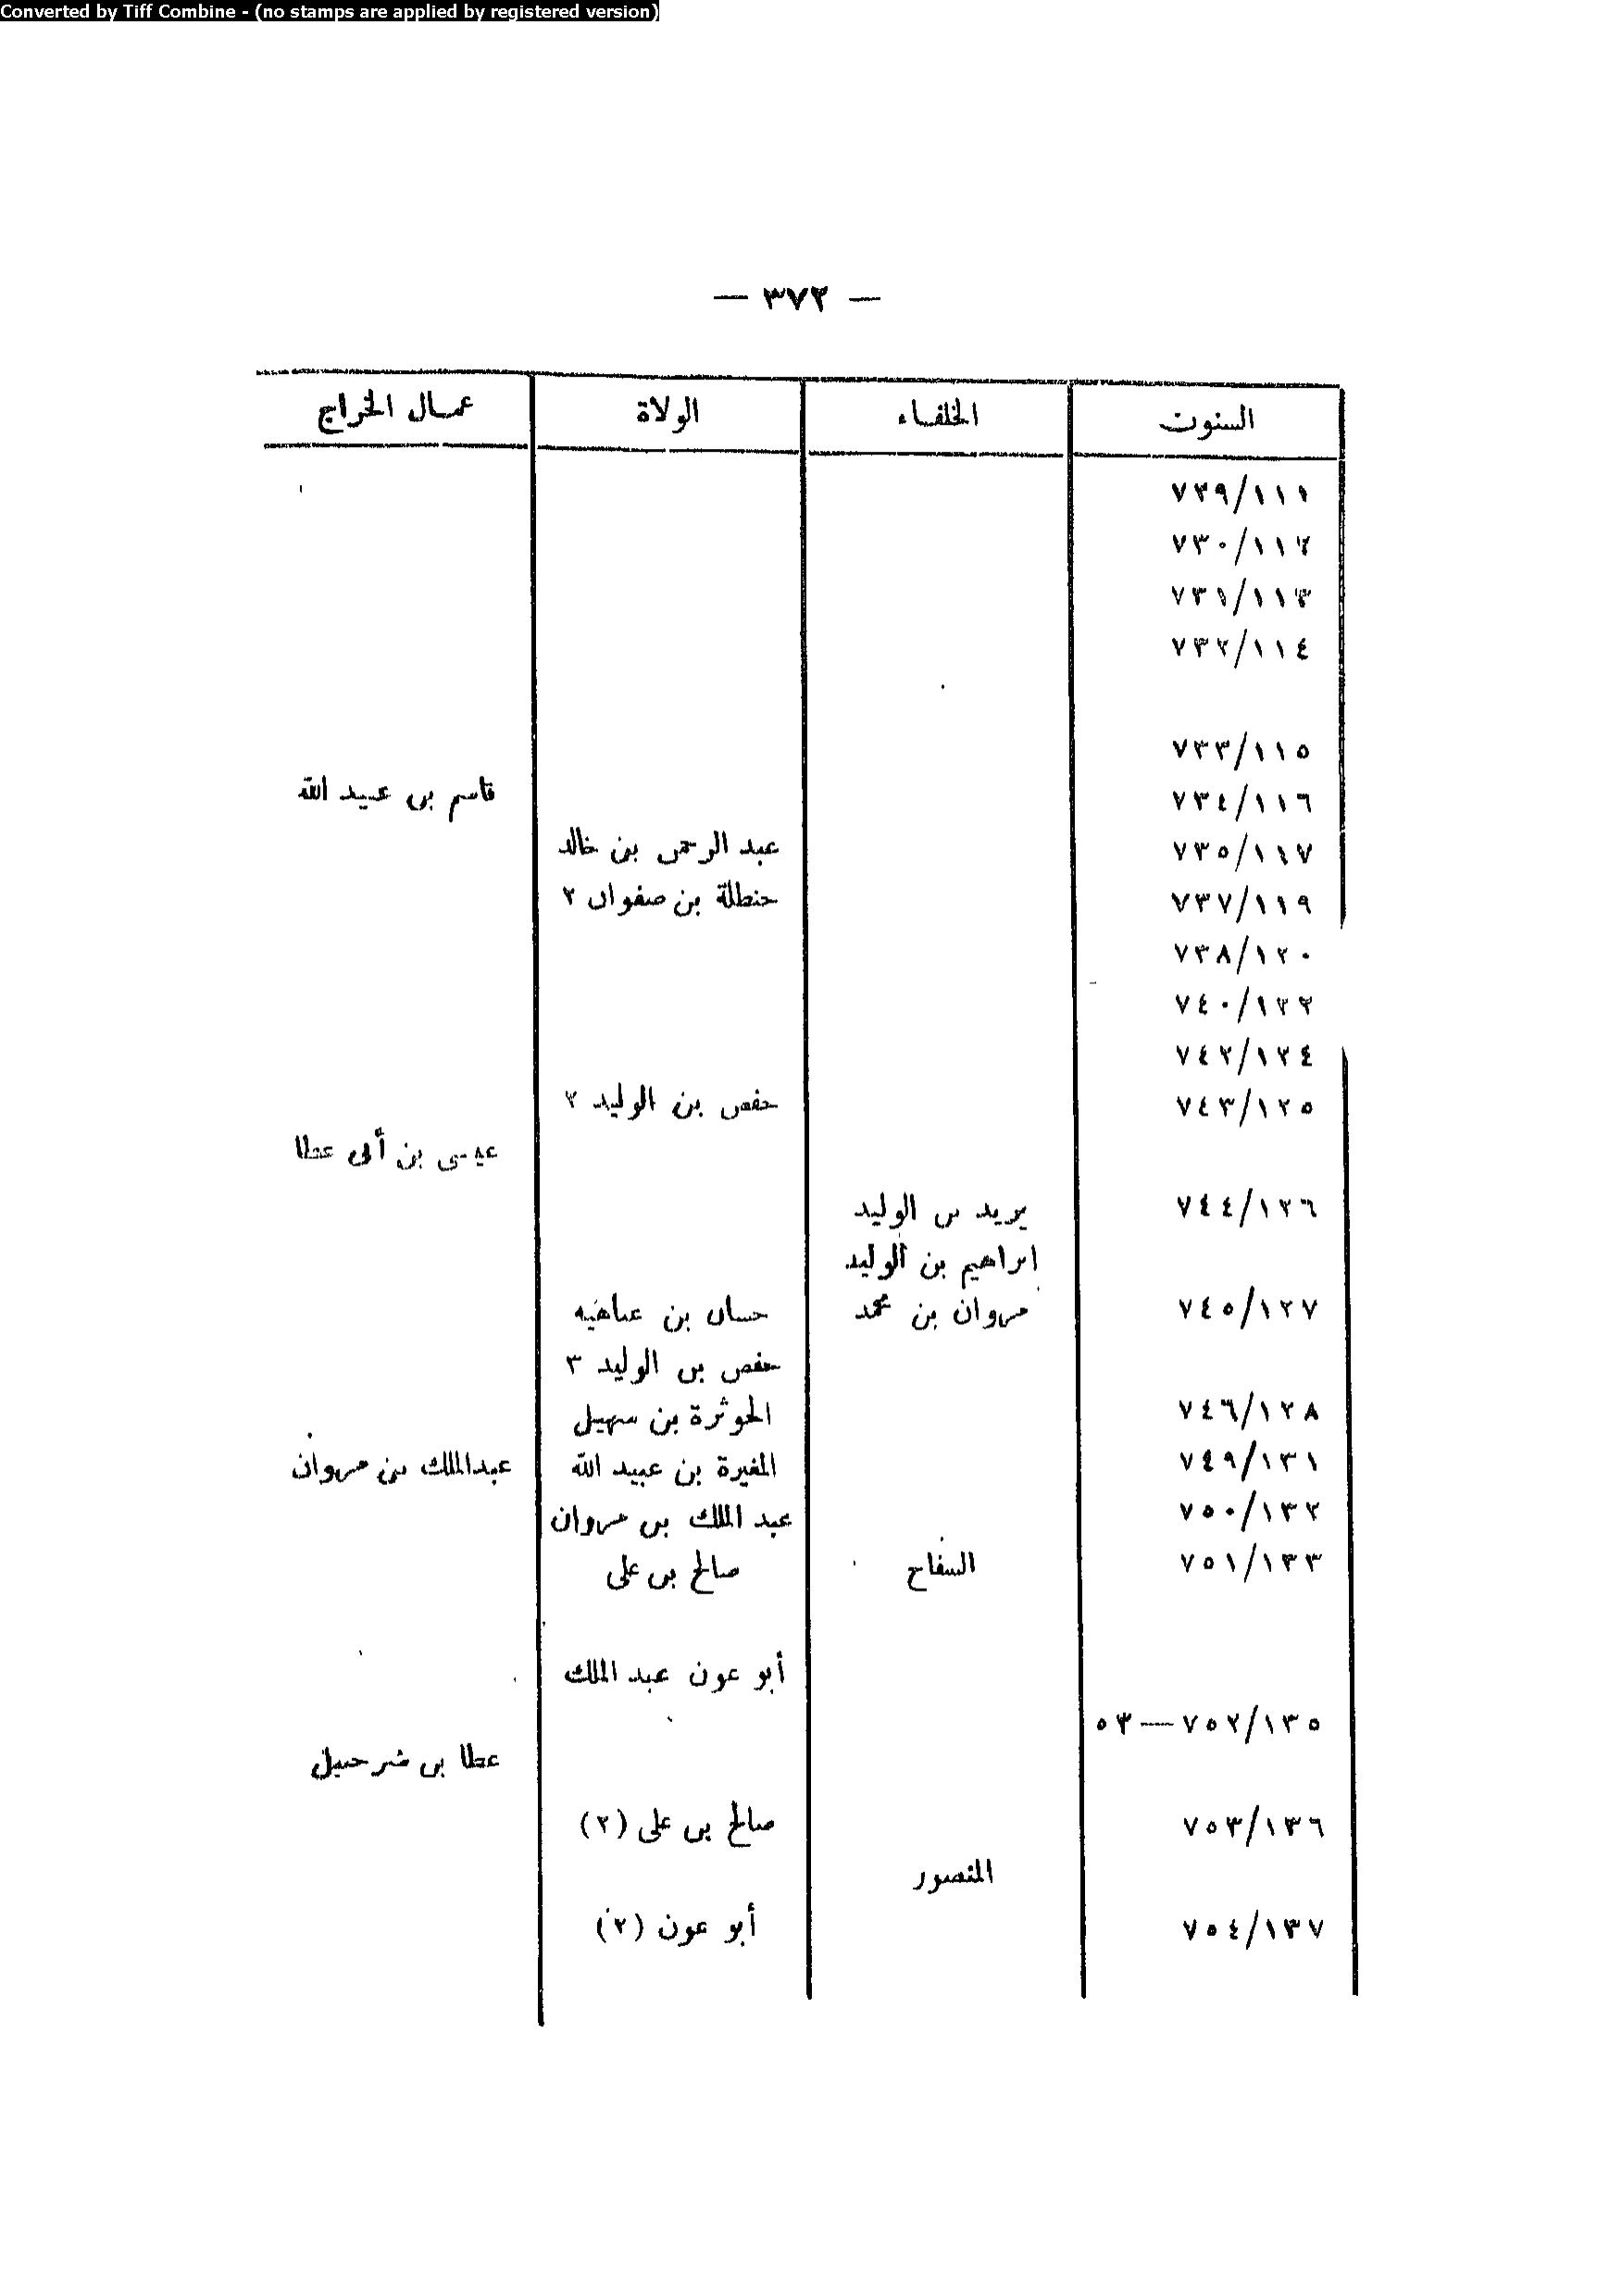 Converted by Tiff Combine - (no stamps are applied by registered version)
— ٣٧٢ —
السنوت الخلفاء الولاة عمال الخراج
٧٣٩/١١١
٧٣٠/١١٢
٧٣١/١١٣
٧٣٢/١١٤
٧٣٣/١١٥
٧٣٤/١١٦ قاسم بن عبيد الله
٧٣٥/١١٧ عبد الرحمن بن خالد
٧٣٧/١١٩ حنظلة بن صفوان ٢
٧٣٨/١٢٠
٧٤٠/١٢٢
٧٤٢/١٢٤
٧٤٣/١٢٥ حفص بن الوليد ٢
عيسى بن أبى عطا
٧٤٤/١٢٦ يزيد بن الوليد
ابراهيم بن الوليد
٧٤٥/١٢٧ مروان بن محمد حسان بن عتاهيه
حفص بن الوليد ٣
٧٤٦/١٢٨ الحوثرة بن سهيل
٧٤٩/١٣١ المغيرة بن عبيد الله عبدالملك بن مروان
٧٥٠/١٣٢ عبد الملك بن مروان
٧٥١/١٣٣ السفاح صالح بن على
أبو عون عبد الملك
٧٥٢/١٣٥—٥٣
عطا بن شرحبيل
٧٥٣/١٣٦ صالح بن على (٢)
المنصور
٧٥٤/١٣٧ أبو عون (٢)